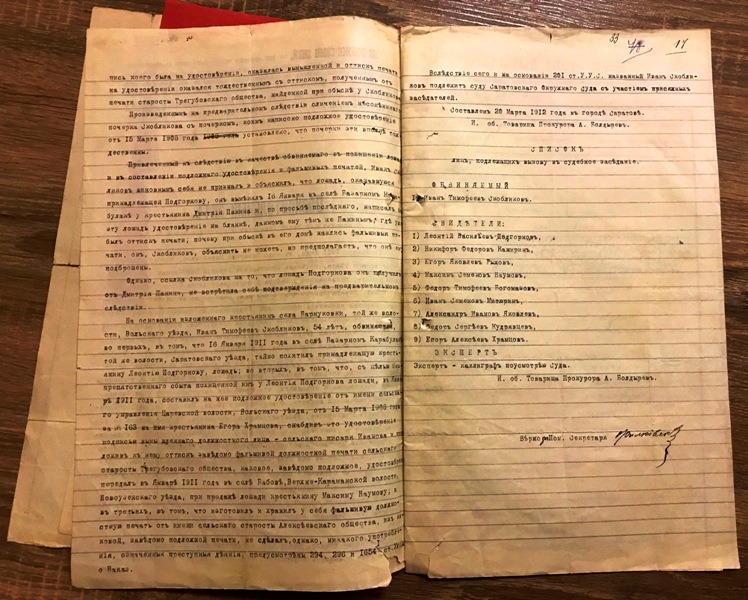 пись коего была на удостовѣреніи, оказалась вымышленной и оттискъ печати
на удостовѣреніи оказался тождественнымъ съ оттискомъ, полученнымъ отъ
печати старосты Трегубовскаго общества, найденной при обыскѣ у Скобликова
Произведеннымъ на предварительномъ слѣдствіи сличеніемъ несомнѣннаго
почерка Скобликова съ почеркомъ, коимъ написано подложное удостовѣреніе
отъ 15 Марта 1908 года установлено, что почерки эти вполнѣ тож
дественны.
Привлеченный къ слѣдствію въ качествѣ обвиняемаго въ похищеніи лошади
и въ составленіи подложнаго удостовѣренія и фальшивыхъ печатей, Иванъ Скоб
ликовъ виновнымъ себя не призналъ и объяснилъ, что лошадь, оказавшуюся
принадлежащей Подгорнову, онъ вымѣнялъ 16 Января въ селѣ Базарномъ Кара
булакѣ у крестьянина Дмитрія Панина и, по просьбѣ послѣдняго, написалъ на
эту лошадь удостовѣреніе на бланкѣ, данномъ ему тѣмъ же Панинымъ, гдѣ уже
былъ оттискъ печати; почему при обыскѣ въ его домѣ нашлись фальшивыя пе-
чати, онъ, Скобликовъ, объяснить не можетъ, но предполагаетъ, что онѣ ему
подброшены.
Однако, ссылка Скобликова на то, что лошадь Подгорнова онъ получилъ
отъ Дмитрія Панина, не встрѣтила себѣ подтвержденія на предварительномъ
слѣдствіи.
На основаніи изложеннаго крестьянинъ села Барнуковки, той же воло-
сти, Вольскаго уѣзда, Иванъ Тимофеевъ Скобликовъ, 54 лѣтъ, обвиняется
во первыхъ, въ томъ, что 16 Января 1911 года въ селѣ Базарномъ Карабулакѣ
той же волости, Саратовскаго уѣзда, тайно похитилъ принадлежащую кресть-
янину Леонтію Подгорнову, лошадь; во вторыхъ, въ томъ, что, съ цѣлью без
препятственнаго сбыта похищенной имъ у Леонтія Подгорнова лошади, въ Янва
рѣ 1911 года, составилъ на нее подложное удостовѣреніе отъ имени сельска
го управленія Царевской волости, Вольскаго уѣзда, отъ 15 Марта 1908 года
за № 163 на имя крестьянина Егора Храмцова, снабдивъ это удостовѣреніе
подписью вымышленнаго должностного лица - сельскаго писаря Иванова и при
ложивъ къ нему оттискъ завѣдомо фальшивой должностной печати сельскаго
старосты Трегубовскаго общества, каковое, завѣдомо подложное, удостовѣреніе
передалъ въ Январѣ 1911 года въ селѣ Верхне-Караманской волости,
Новоузенскаго уѣзда, при продажѣ лошади крестьянину Максиму Наумову; а
въ третьихъ, въ томъ, что изготовилъ и хранилъ у себя фальшивую должно-
стную печать отъ имени сельскаго старосты Алексѣевскаго общества, изъ ка-
ковой, завѣдомо подложной печати, не сдѣлалъ, однако, никакого употребле-
нія, означенныя преступныя дѣянія, предусмотрѣны 294, 296 и 1654 ст. Улож.
о Наказ.
33 17
Вслѣдствіе сего и на основаніи 201 ст.У.У.С. названный Иванъ Скобли-
ковъ подлежитъ суду Саратовскаго Окружнаго Суда съ участіемъ присяжныхъ
засѣдателей.
Составленъ 28 Марта 1912 года въ городѣ Саратовѣ.
И. об. Товарища Прокурора А. Болдыревъ.
СПИСОКЪ
лицъ, подлежащихъ вызову въ судебное засѣданіе.
ОБВИНЯЕМЫЙ
1) Иванъ Тимофеевъ Скобликовъ.
СВИДѢТЕЛИ:
1) Леонтій Васильевъ Подгорновъ,
2) Никифоръ Федоровъ Камиринъ,
3) Егоръ Яковлевъ Рыховъ,
4) Максимъ Семеновъ Наумовъ,
5) Федоръ Тимофеевъ Богомазовъ,
6) Иванъ Семеновъ
7) Александръ Ивановъ Яковлевъ,
8) Федотъ Сергѣевъ Кудрявцевъ,
9) Егоръ Алексѣевъ Храмцовъ.
ЭКСПЕРТЪ
Экспертъ - каллиграфъ поусмотрѣн. Суда.
И. об. Товарища Прокурора А. Болдыревъ.
Вѣрно: Пом. Секретаря